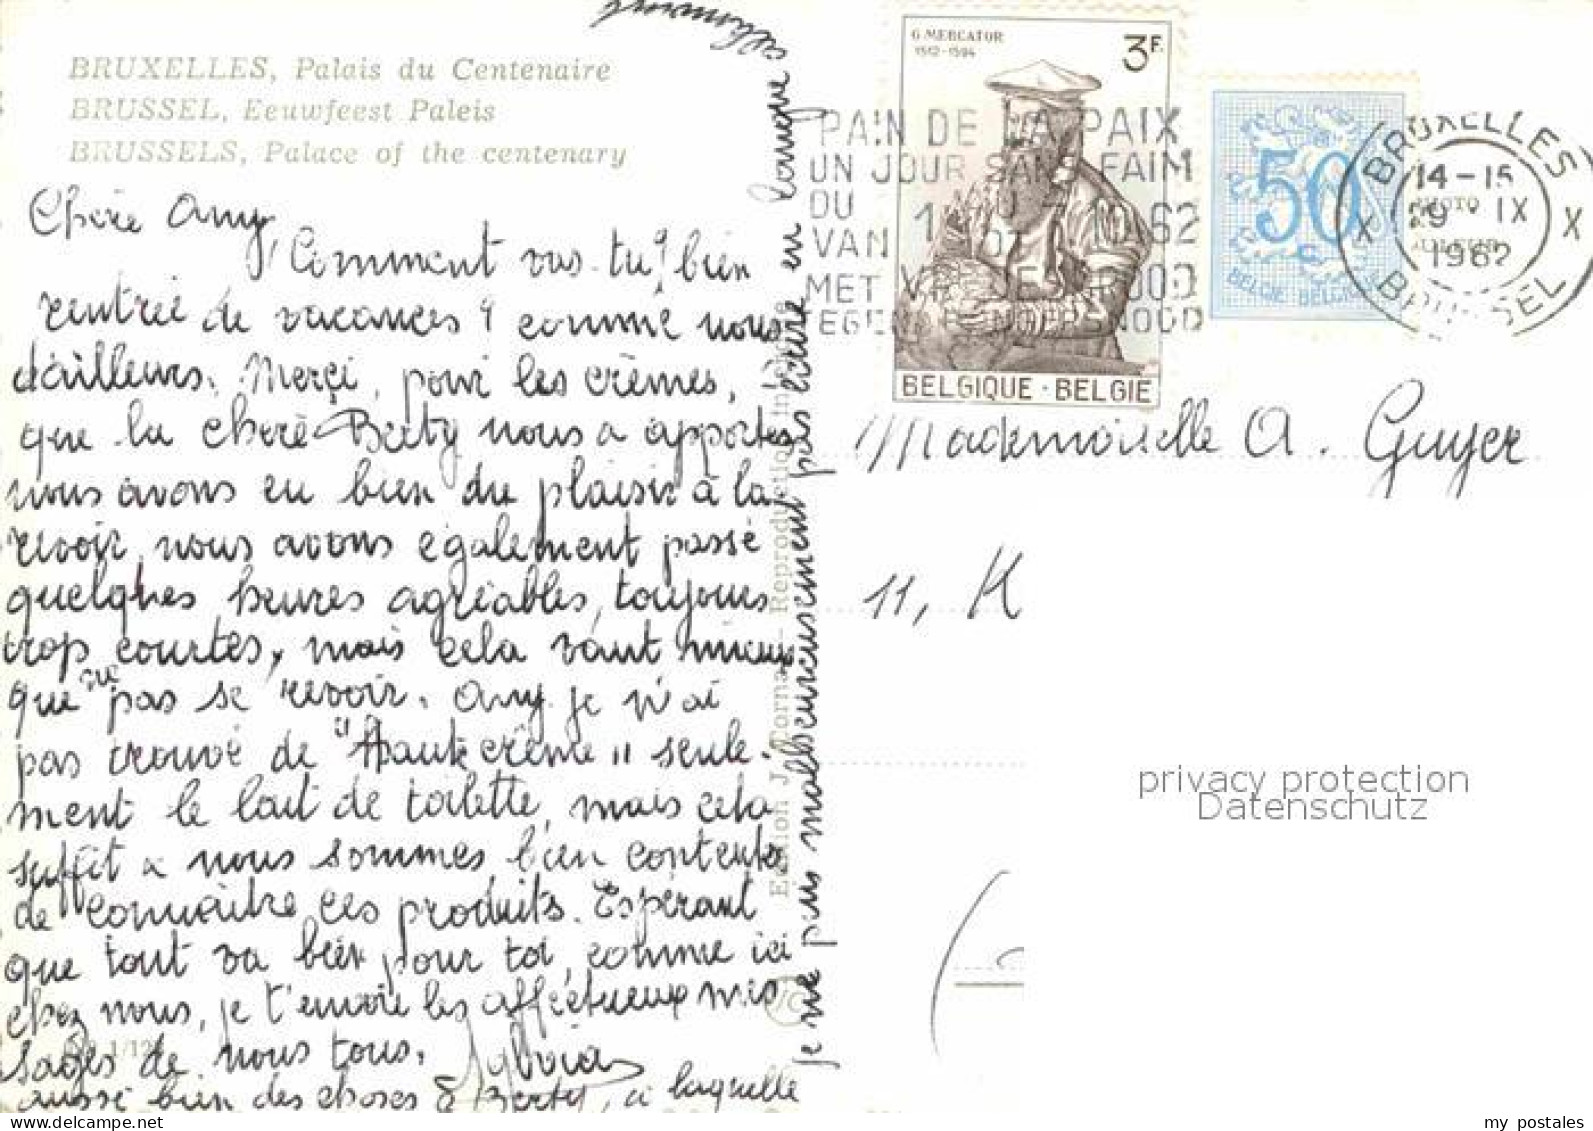 BRUXELLES, Palais du Centenaire
BRUSSEL, Eeuwfeest Paleis
BRUSSELS, Palace of the centenary
Chère Amy,
Comment vas-tu? bien
rentrée de vacances? comme nous
d'ailleurs. Merçi, pour les crèmes,
que la chère Berty nous a apportés
nous avons eu bien du plaisir à la
revoir, nous avons également passé
quelques heures agréables, toujours
trop courtes, mais cela vaut mieux
que ne pas se revoir. Amy je n'ai
pas trouvé de "Haute crême" seule-
ment le lait de toilette, mais cela
suffit & nous sommes bien contents
de connaître ces produits. Espérant
que tout va bien pour toi, comme ici
chez nous, je t'envoie les affectueux mes
sages de nous tous. Sylvia
aussi bien des choses à Berty, à laquelle
je ne puis malheureusement pas écrire en langue allemand
Edition J. Reproduction
1/12
G. MERCATOR
1512-1594
3F.
BELGIQUE · BELGIE
50
BELGIE BELGIQUE
PAIN DE LA PAIX
UN JOUR SANS FAIM
DU 1 AU 7 10 62
VAN
MET
BRUXELLES
14-15
29 · IX
1962
X X
BRUSSEL
Mademoiselle A. Guyer
11, K
privacy protection
Datenschutz
my postales